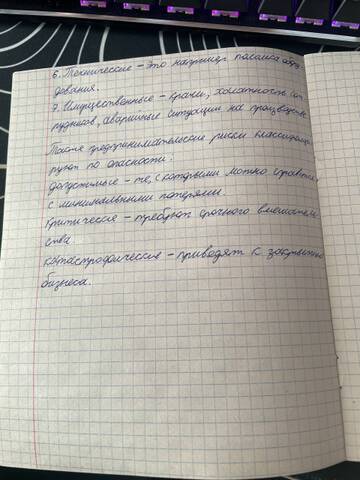 6. Технические – это например поломка обору
дования.
7. Имущественные – кражи, халатность сот
рудников, аварийные ситуации на производстве
Также предпринимательские риски классифици
руют по опасности:
допустимые – те, с которыми можно справиться
с минимальными потерями
критические – требуют срочного вмешатель
ства
катастрофические – приводят к закрытию
бизнеса.